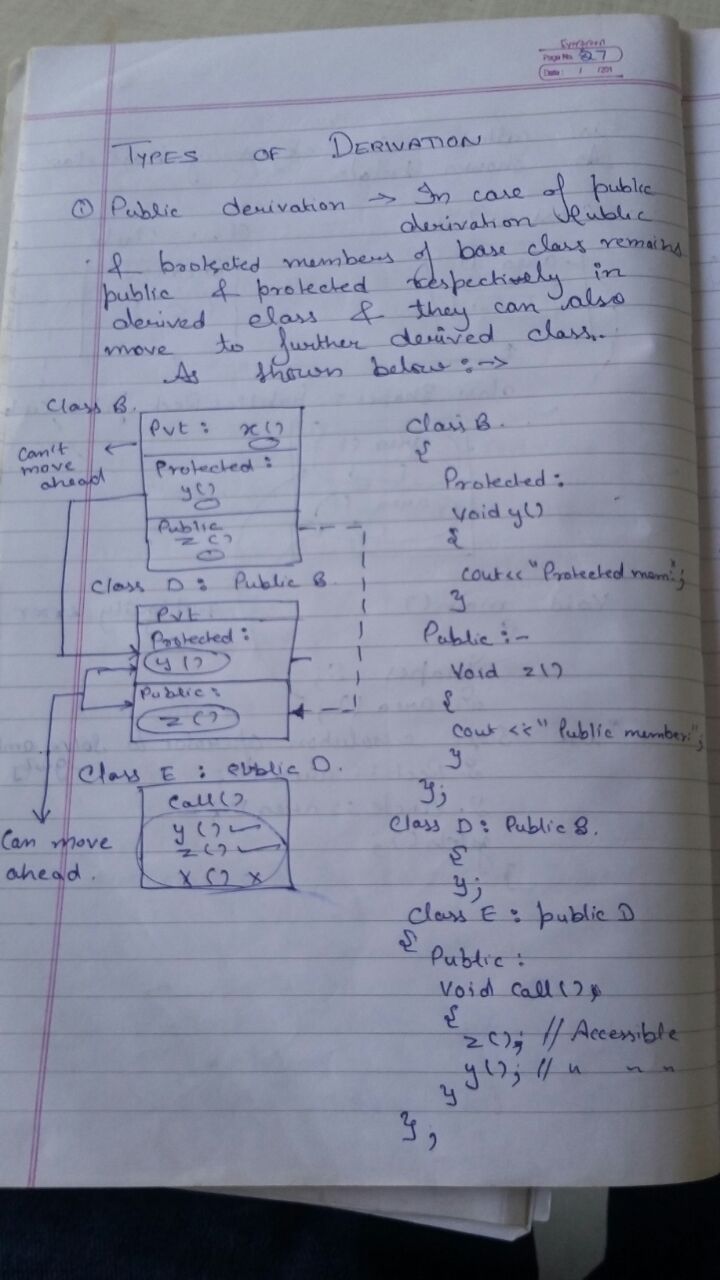 Evergreen
Page No. 27
Date: / /201
TYPES OF DERIVATION
① Public derivation → In case of public
derivation public
& protected members of base class remains
public & protected respectively in
derived class & they can also
move to further derived class.
As shown below :→
Class B.
Pvt : x()
Can't
move
ahead
Protected :
y()
Public
z()
Class D : Public B
Pvt
Protected :
y()
Public :
z()
Class E : public D.
Call()
y() ✓
z() ✓
x() x
Can move
ahead.
Class B.
{
Protected :
void y()
{
cout<< "Protected mem:";
}
Public :-
Void z()
{
cout << "Public member:";
}
};
Class D : Public B.
{
};
Class E : public D
{
Public :
void call()
{
z(); // Accessible
y(); // " " "
}
};